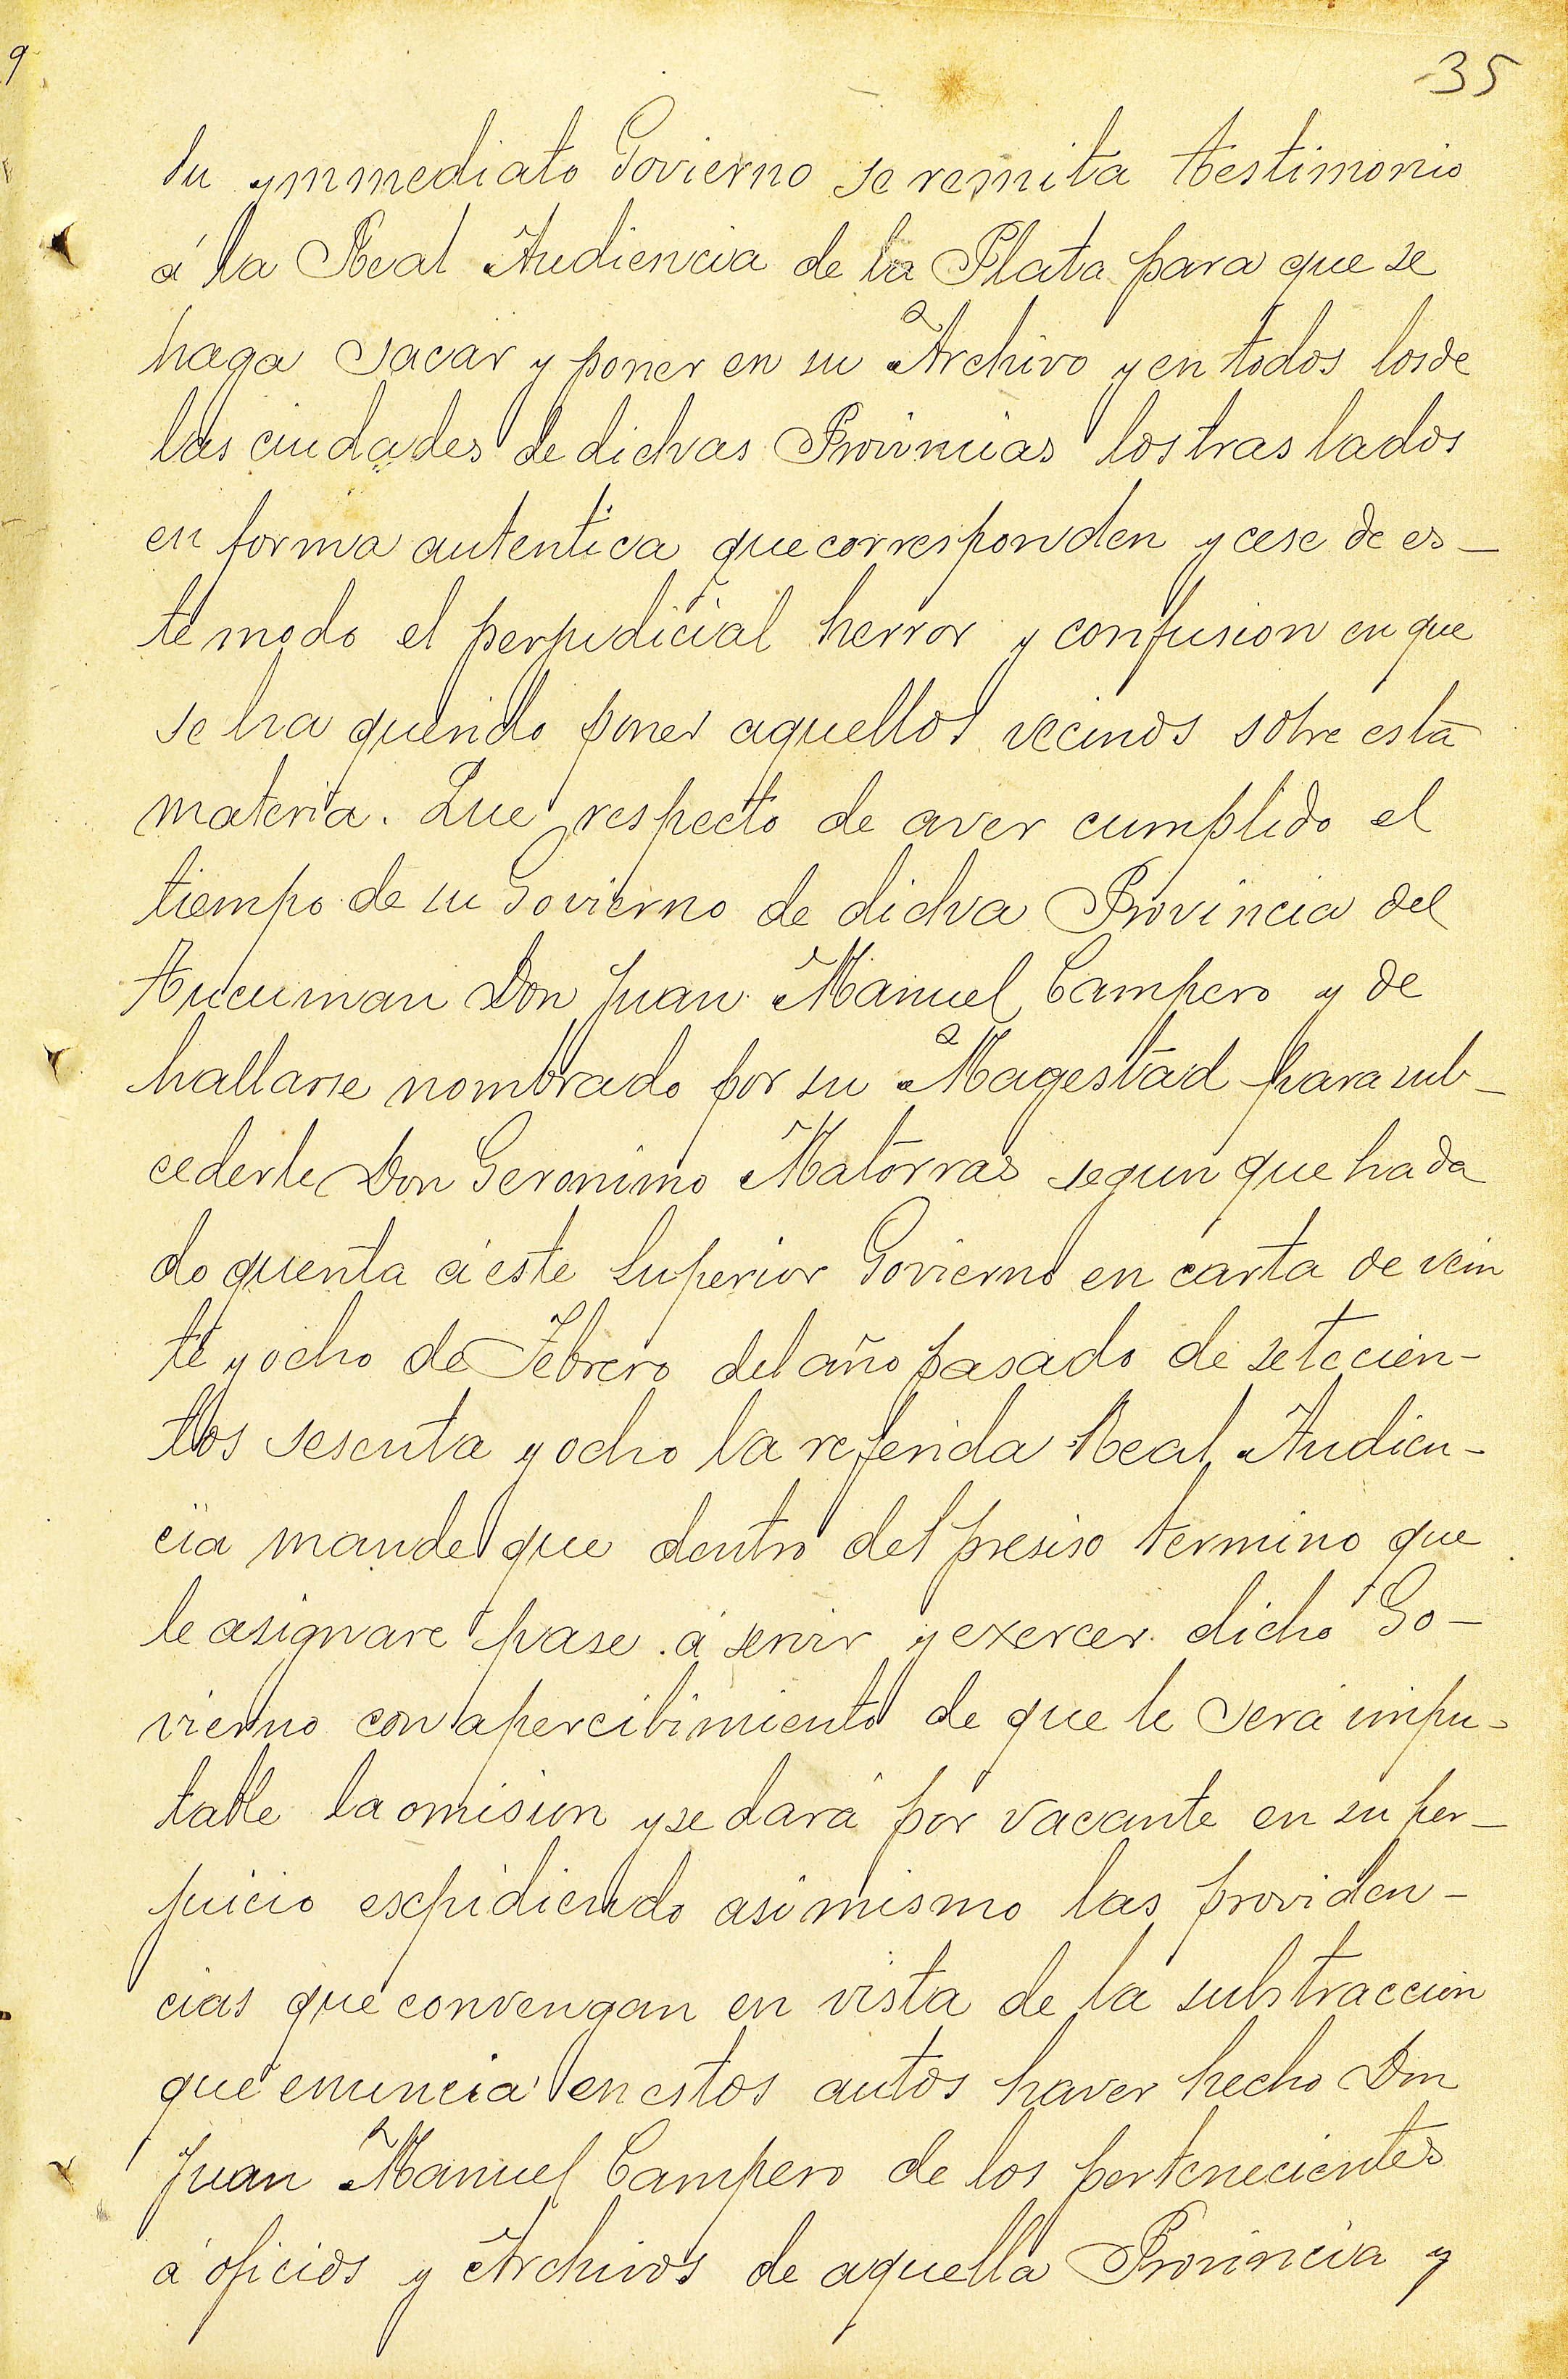 9
35
su ynmediato Govierno se remita testimonio
á la Real Audiencia de la Plata para que se
haga sacar y poner en su Archivo y en todos los de
las ciudades de dichas Provincias los traslados
en forma autentica que corresponden y cese de es_
te modo el perjudicial herror y confusion en que
se ha querido poner aquellos vecinos sobre esta
materia. Que respecto de aver cumplido el
tiempo de su Govierno de dicha Provincia del
Tucuman Don Juan Manuel Campero y de
hallarse nombrado por su Magestad para sub_
cederle Don Geronimo Matorras segun que ha da
do quenta á este Superior Govierno en carta de vein
te y ocho de Febrero del año pasado de setecien-
tos sesenta y ocho la referida Real Audien-
cia mande que dentro del presiso termino que
le asignare pase á servir y exercer dicho Go-
vierno con apercibimiento de que le será impu-
table la omision y se dará por vacante en su per_
juicio espidiendo asimismo las providen-
cias que convengan en vista de la substraccion
que enuncia en estos autos haver hecho Don
Juan Manuel Campero de los pertenecientes
á oficios y Archivos de aquella Provincia y